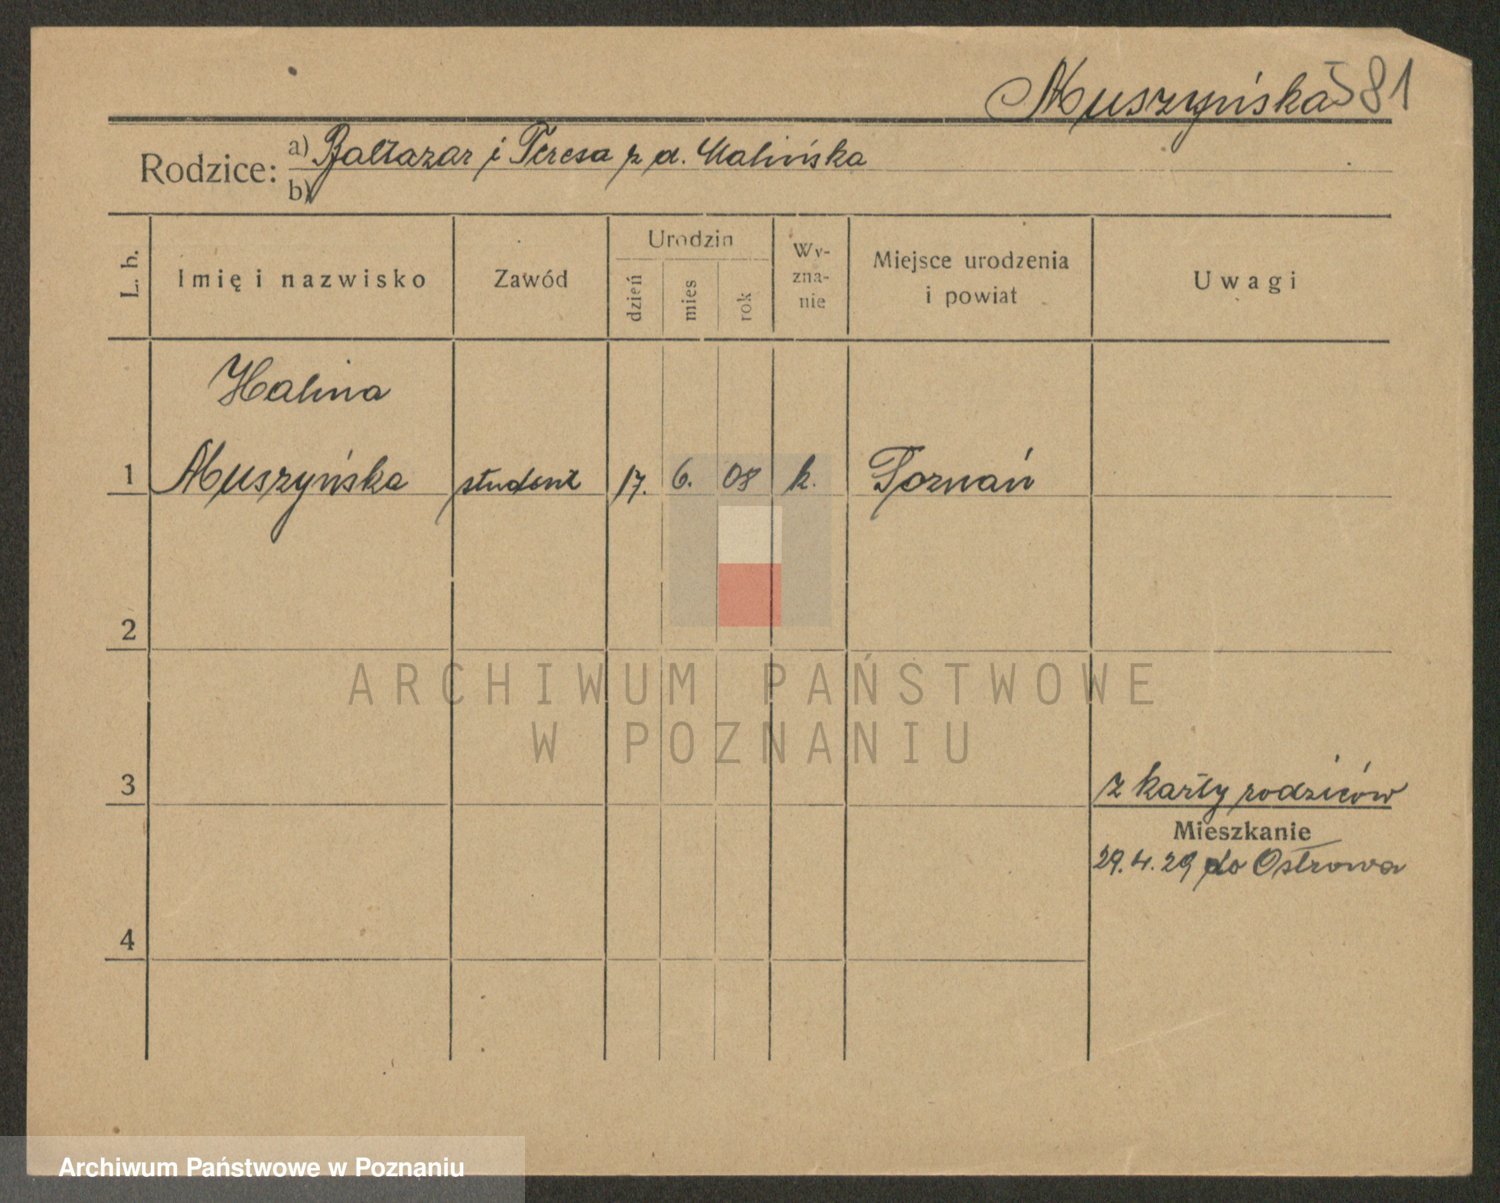 Muszyńska 581
Rodzice: a) Baltazar i Teresa z d. Malińska
b)
L. b. Imię i nazwisko Zawód Urodzin dzień mies rok Wy-zna-nie Miejsce urodzenia i powiat Uwagi
Halina
1 Muszyńska student 17. 6. 08 k. Poznań
2
ARCHIWUM PAŃSTWOWE
W POZNANIU
3 z karty rodziców
Mieszkanie
29.4.29 do Ostrowa
4
Archiwum Państwowe w Poznaniu